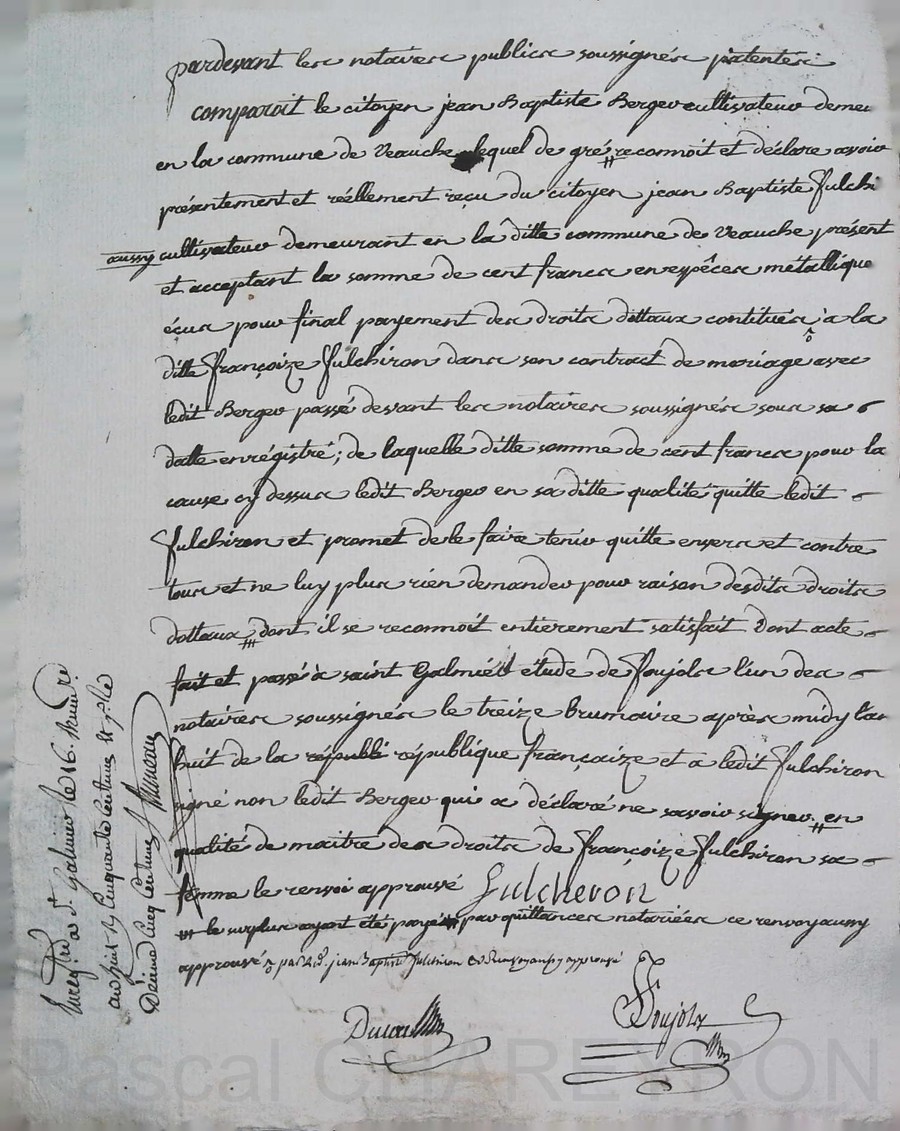 pardevant les notaires publics soussignés patentés
comparoit le citoyen jean Baptiste Berger cultivateur demeu
en la commune de Veauche lequel de gré reconnoit et déclare avoir
présentement et réellement reçu du citoyen jean Baptiste fulchi
aussy cultivateur demeurant en la ditte commune de Veauche présent
et acceptant la somme de cent francs en espêces métallique
écus pour final payement des droits dottaux contitués à la
ditte françoize fulchiron dans son contract de mariage avec
ledit Berger passé devant les notaires soussignés sous sa
datte enrégistré; de laquelle ditte somme de cent francs pour la
cause cy dessus ledit Berger en sa ditte qualité quitte ledit
fulchiron et promet de le faire tenir quitte envers et contre
tous et ne luy plus rien demander pour raison desdits droits
dottaux dont il se reconnoit entièrement satisfait Dont acte
fait et passé à saint Galmier étude de Foujols l'un des
notaires soussignés le treize brumaire après midy l'an
huit de la républi république françaize et a ledit fulchiron
signé non ledit Berger qui a déclaré ne savoir signer. en
qualité de maitre des droits de françoize fulchiron sa
femme le renvoi approuvé Fulcheron
le surplus ayant été payé par quittances notariées ce renvoy aussy
approuvé par led. jean Baptiste fulchiron renvoy aussy approuvé
Foujols
Enregtré a St. Galmier le 16 Brumre
an huit Rç cinquante centimes et ple
Décime cinq centimes
Pascal CHAREYRON